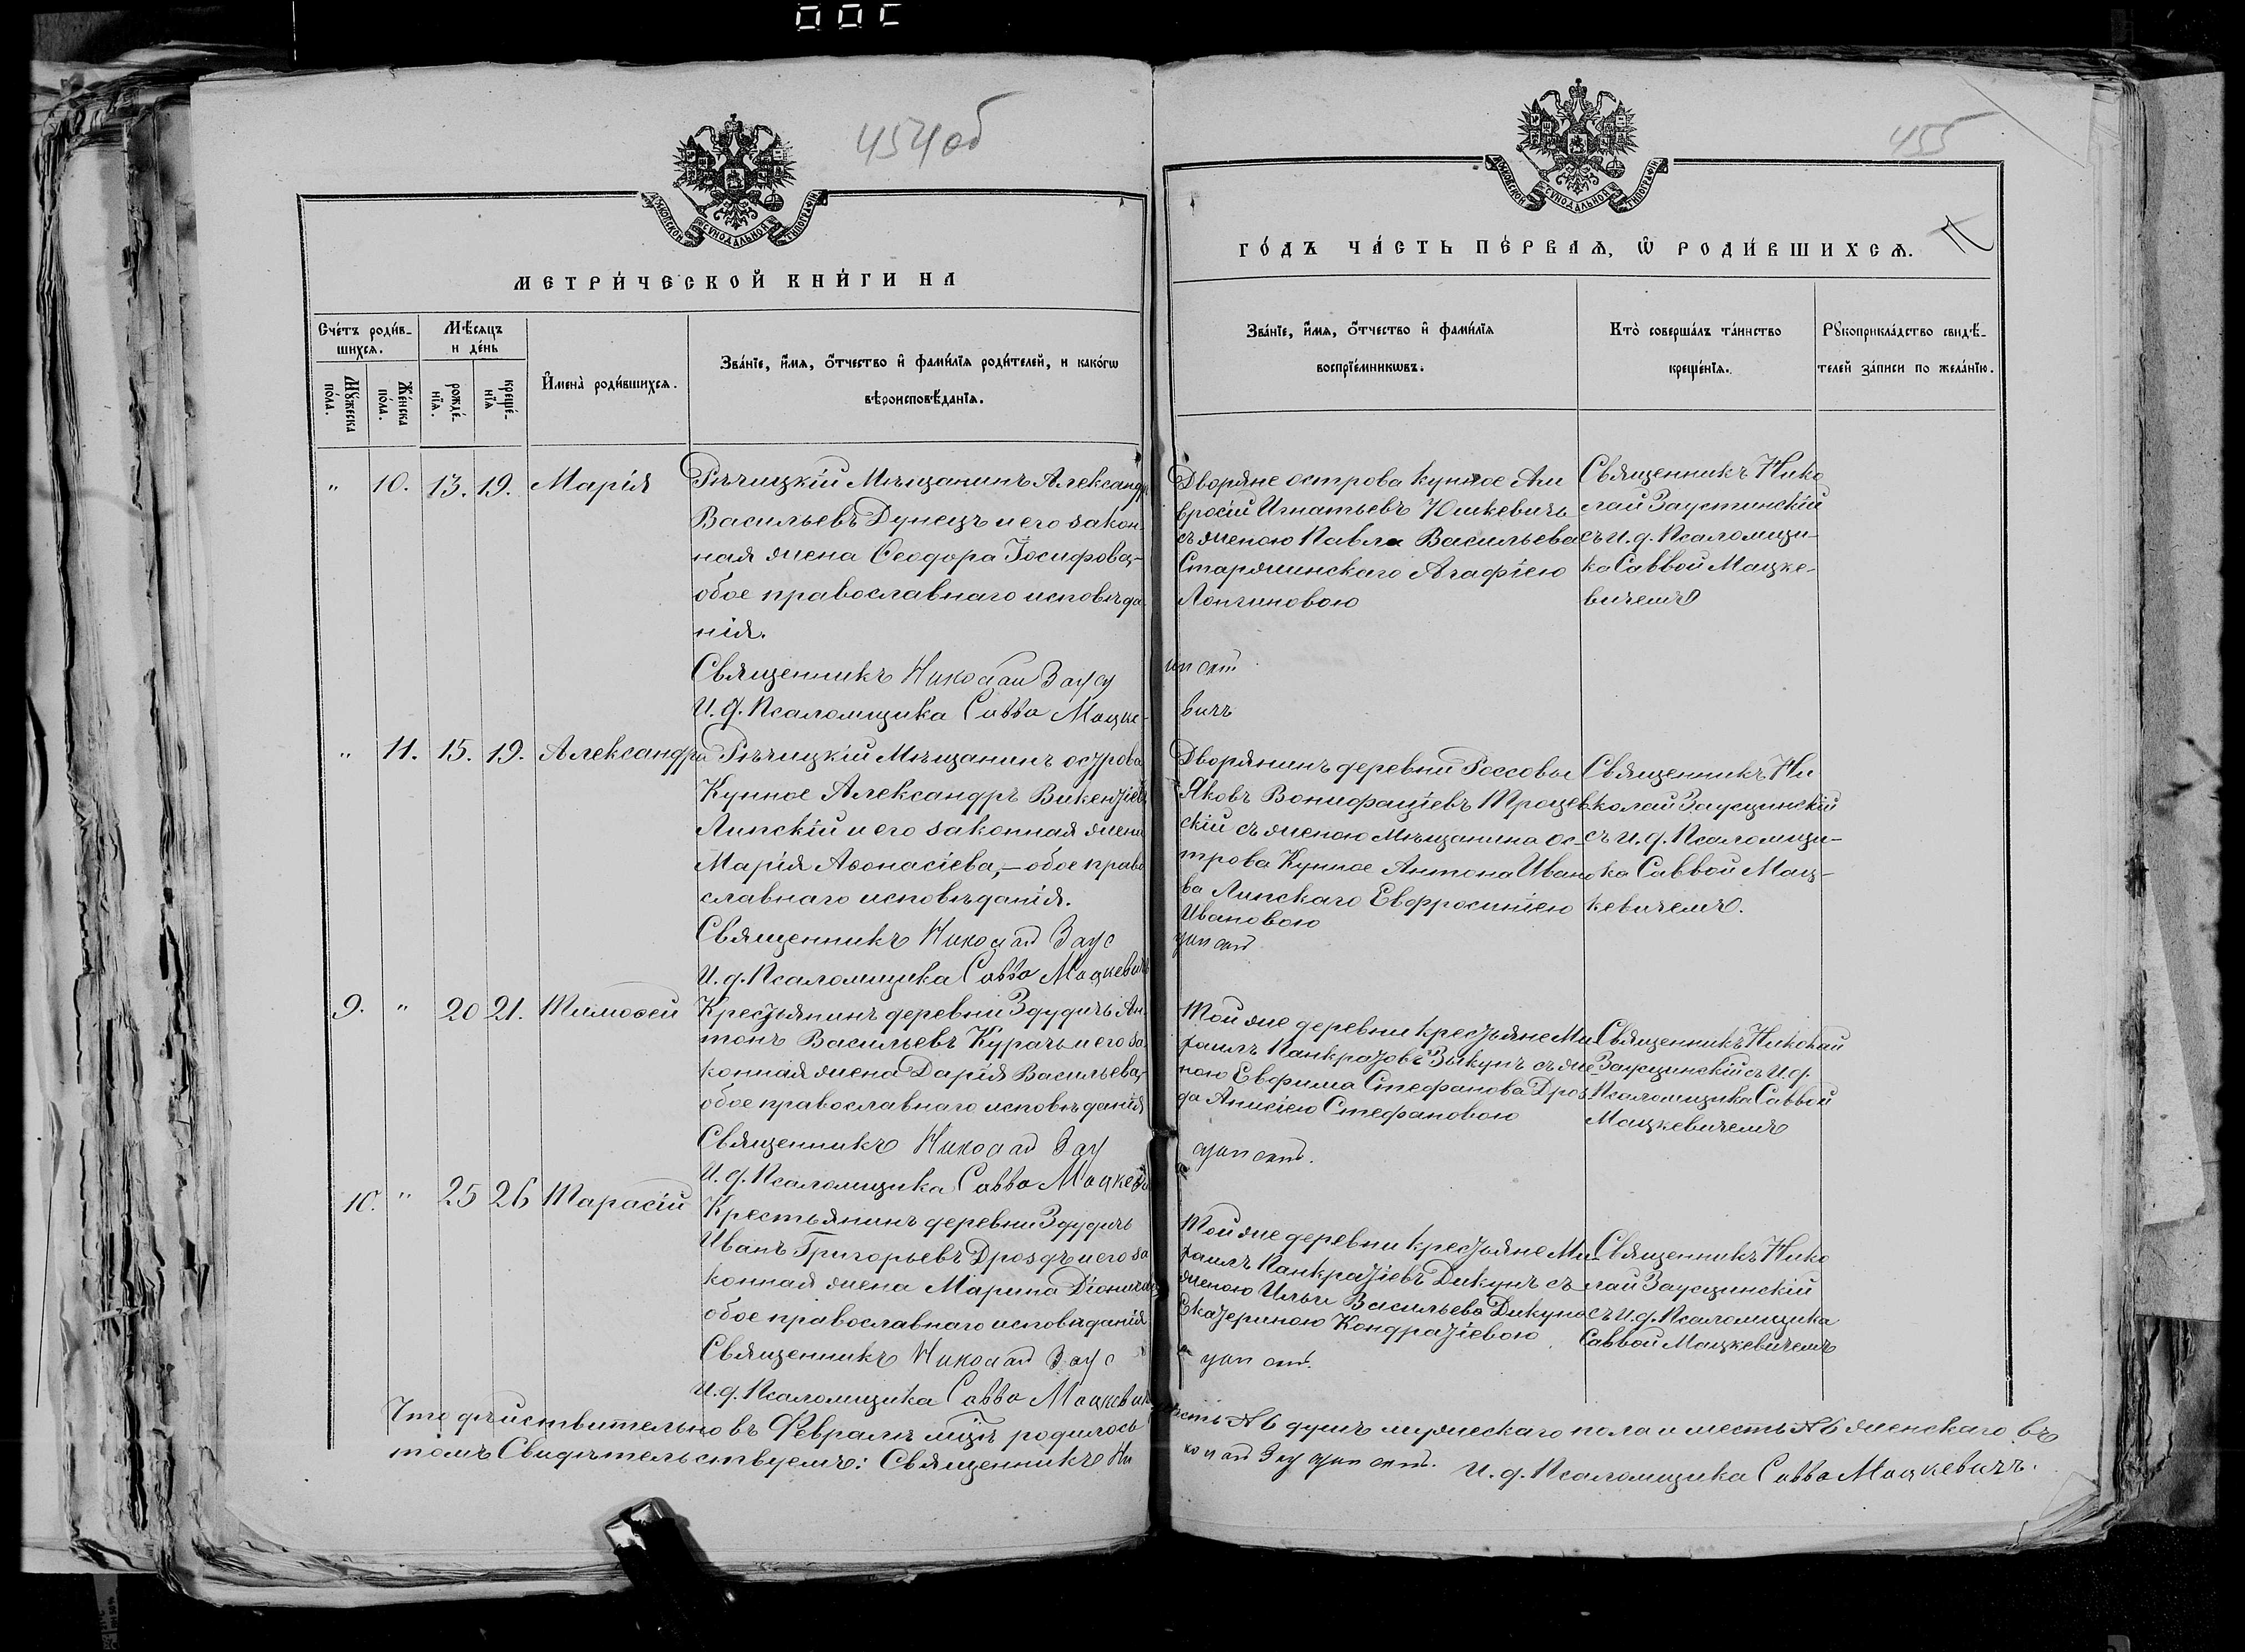 454об
МОСКОВСКОЙ СѴНОДАЛЬНОЙ ТИПОГРАФІИ
МЕТРИ́ЧЕСКОЙ КНИ́ГИ НА
Сче́тъ роди́в-
шихся.
Мѣ́сяцъ
и де́нь
Му́жеска
по́ла.
Же́нска
по́ла.
рожде́-
нїя.
креще́-
нїя
И҆мена̀ роди́вшихся.
Зва́нїе, и҆́мя, ѻ҆́тчество и҆ фами́лїя роди́телей, и како́гѡ
вѣроисповѣ́данїя.
„ 10. 13. 19. Марія
Рѣчицкій Мѣщанинъ Александръ
Васильевъ Дунецъ и его закон-
ная жена Ѳеодора Іосифова,-
обое православнаго исповѣда
нія.
Священникъ Николай Заусц
И. д. Псаломщика Савва Мацке-
„ 11. 15. 19. Александра
Рѣчицкій Мѣщанинъ острова
Кунное Александръ Викентіевъ
Липскій и его законная жена
Марія Аѳонасіева,- обое право
славнаго исповѣданія.
Священникъ Николай Заус
И. д. Псаломщика Савва Мацкевичъ
9. „ 20 21. Тимоѳей
Крестьянинъ деревни Здудичъ Ан-
тонъ Васильевъ Курачъ и его за
конная жена Дарія Васильева,-
обое православнаго исповѣданія
Священникъ Николай Зау
И. д. Псаломщика Савва Мацкеви
10. „ 25 26 Тарасій
Крестьянинъ деревни Здудичъ
Иванъ Григорьевъ Дроздъ и его за
конная жена Марина Діонисіева
обое православнаго исповѣданія
Священникъ Николай Заус
И. д. Псаломщика Савва Мацкевичъ
Что дѣйствительно въ Февралѣ мцѣ родилось
томъ Свидѣтельствуемъ: Священникъ Ни
455
МОСКОВСКОЙ СѴНОДАЛЬНОЙ ТИПОГРАФІИ
ГО́ДЪ ЧА́СТЬ ПЕ́РВАЯ, Ѡ҆ РОДИ́ВШИХСЯ.
Зва́нїе, и҆́мя, ѻ҆́тчество и҆ фами́лїя
воспрїе́мникѡвъ.
Кто̀ соверша́лъ та́инство
креще́нїя.
Рꙋкоприкла́дство свидѣ́-
телей за́писи по жела́нїю.
Дворяне острова Кунное Ам
вросій Игнатьевъ Юшкевичъ
съ женою Павла Васильева
Старжинскаго Агафіею
Лонгиновою
Священникъ Нико
лай Заустинскій
съ И. д. Псаломщи-
ка Саввой Мацке-
вичемъ
вичъ
Дворянинъ деревни Россовы
Яковъ Вонифаціевъ Процев
скій съ женою Мѣщанина ос-
трова Кунное Антона Ивано
ва Липскаго Евфросиніею
Ивановою
Священникъ Ни
колай Заусцинскій
съ И. д. Псаломщи-
ка Саввой Мац-
кевичемъ.
Той же деревни крестьяне Ми
хаилъ Панкратовъ Зыкунъ съ же
ною Евфима Стефанова Дроз
да Анисіею Стефановою
Священникъ Николай
Заусцинскій съ И. д.
Псаломщика Саввой
Мацкевичемъ
Той же деревни крестьяне Ми
хаилъ Панкратіевъ Дикунъ съ
женою Ильи Васильева Дикуна
Екатериною Кондратіевою
Священникъ Нико
лай Заусцинскій
съ И. д. Псаломщика
Саввой Мацкевичемъ
шесть №6 душъ мужескаго пола и шесть №6 женскаго въ
И. д. Псаломщика Савва Мацкевичъ.